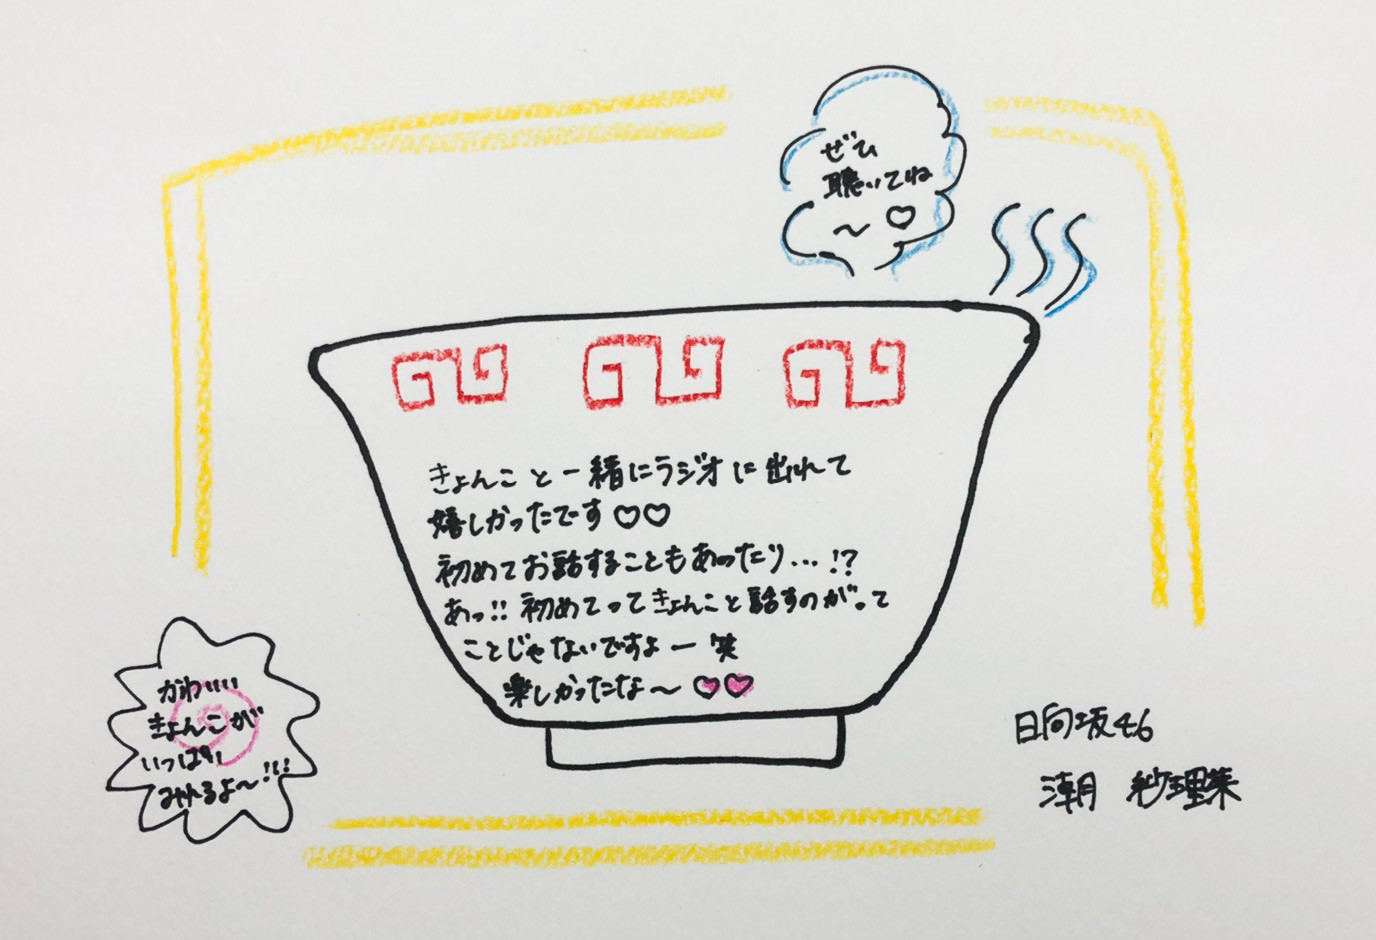 ぜひ
聴いてね
～♡
きょんこと一緒にラジオに出れて
嬉しかったです♡♡
初めてお話することもあったり…!?
あっ!! 初めてってきょんこと話すのがって
ことじゃないですよー笑
楽しかったな～♡♡
かわいい
きょんこが
いっぱい
みれるよ～!!!
日向坂46
潮 紗理菜